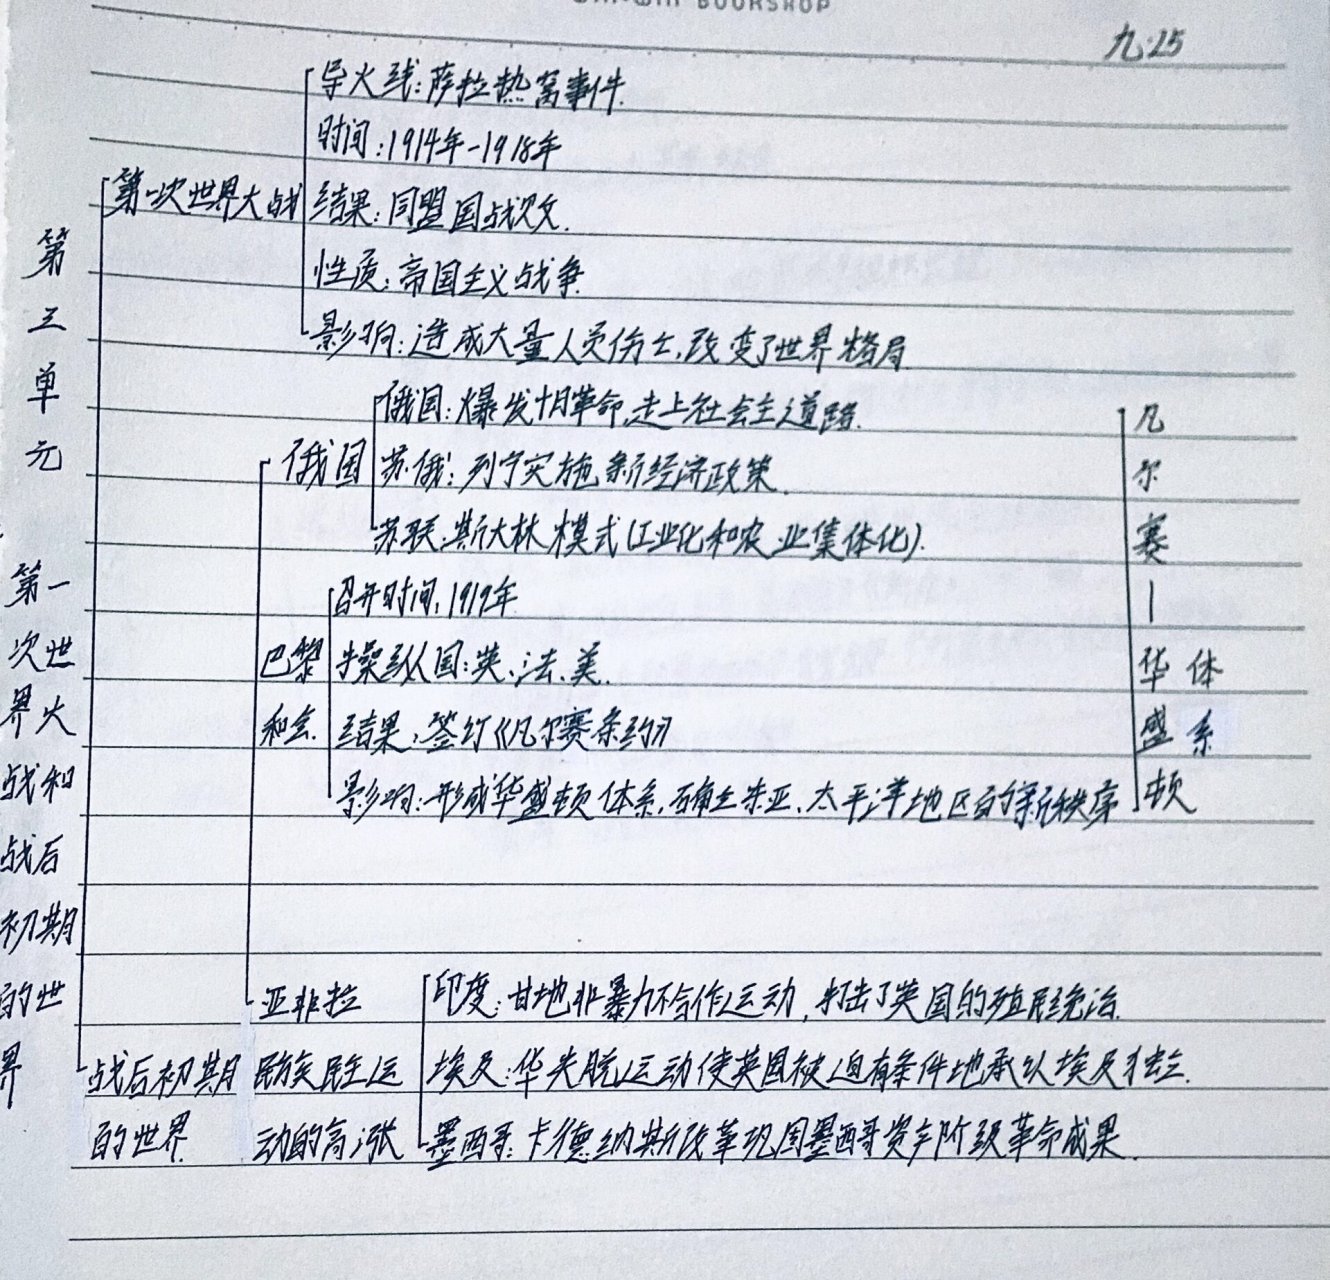 BOOKSHOP
九.25
第三单元 第一次世界大战和战后初期的世界
第一次世界大战
导火线:萨拉热窝事件.
时间:1914年-1918年
结果:同盟国战败.
性质:帝国主义战争.
影响:造成大量人员伤亡,改变了世界格局
战后初期的世界
俄国
俄国:爆发十月革命,走上社会主义道路.
苏俄:列宁实施新经济政策.
苏联:斯大林模式(工业化和农业集体化).
巴黎和会.
召开时间:1919年
操纵国:英、法、美.
结果:签订《凡尔赛条约》
影响:形成华盛顿体系,确立东亚、太平洋地区的新秩序
凡尔赛—华盛顿
体系
亚非拉民族民主运动的高涨
印度:甘地非暴力不合作运动,打击了英国的殖民统治.
埃及:华夫脱运动使英国被迫有条件地承认埃及独立.
墨西哥:卡德纳斯改革巩固墨西哥资产阶级革命成果.